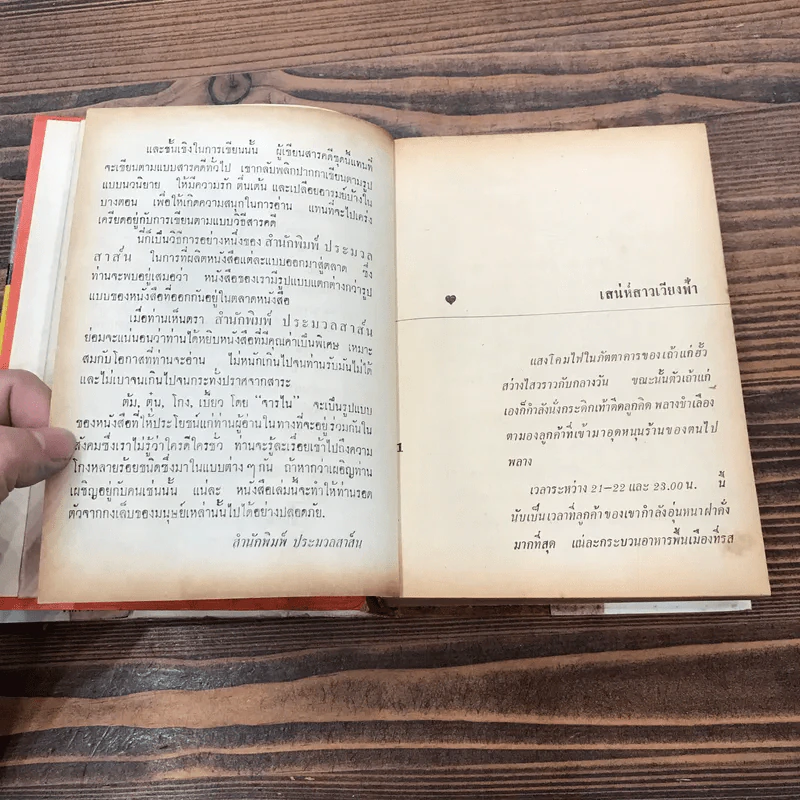 และชั้นเชิงในการเขียนนั้น ผู้เขียนสารคดีชุดนี้แทนที่
จะเขียนตามแบบสารคดีทั่วไป เขากลับพลิกปากกาเขียนตามรูป
แบบนวนิยาย ให้มีความรัก ตื่นเต้น และเปลือยอารมย์บ้างใน
บางตอน เพื่อให้เกิดความสนุกในการอ่าน แทนที่จะไปเคร่ง
เครียดอยู่กับการเขียนตามแบบวิธีสารคดี
นี่ก็เป็นวิธีการอย่างหนึ่งของ สำนักพิมพ์ ประมวล
สาส์น ในการที่ผลิตหนังสือแต่ละแบบออกมาสู่ตลาด ซึ่ง
ท่านจะพบอยู่เสมอว่า หนังสือของเรามีรูปแบบแตกต่างกว่ารูป
แบบของหนังสือที่ออกกันอยู่ในตลาดหนังสือ
เมื่อท่านเห็นตรา สำนักพิมพ์ ประมวลสาส์น
ย่อมจะแน่นอนว่าท่านได้หยิบหนังสือที่มีคุณค่าเป็นพิเศษ เหมาะ
สมกับโอกาสที่ท่านจะอ่าน ไม่หนักเกินไปจนท่านรับมันไม่ได้
และไม่เบาจนเกินไปจนกระทั่งปราศจากสาระ
ต้ม, ตุ๋น, โกง, เบี้ยว โดย "จารไน" จะเป็นรูปแบบ
ของหนังสือที่ให้ประโยชน์แก่ท่านผู้อ่านในทางที่จะอยู่ร่วมกันใน
สังคมซึ่งเราไม่รู้ว่าใครดีใครชั่ว ท่านจะรู้ละเรื่อยเข้าไปถึงความ
โกงหลายร้อยชนิดซึ่งมาในแบบต่าง ๆ กัน ถ้าหากว่าเผอิญท่าน
เผชิญอยู่กับคนเช่นนั้น แน่ละ หนังสือเล่มนี้จะทำให้ท่านรอด
ตัวจากกงเล็บของมนุษย์เหล่านั้นไปได้อย่างปลอดภัย.
สำนักพิมพ์ ประมวลสาส์น
เสน่ห์สาวเวียงฟ้า
แสงโคมไฟในภัตตาคารของเถ้าแก่ฮั้ว
สว่างไสวราวกับกลางวัน ขณะนั้นตัวเถ้าแก่
เองก็กำลังนั่งกระดิกเท้าดีดลูกคิด พลางชำเลือง
ตามองลูกค้าที่เข้ามาอุดหนุนร้านของตนไป
พลาง
1
เวลาระหว่าง 21—22 และ 23.00 น. นี้
นับเป็นเวลาที่ลูกค้าของเขากำลังอุ่นหนาฝาคั่ง
มากที่สุด แน่ละกระบวนอาหารพื้นเมืองที่รส